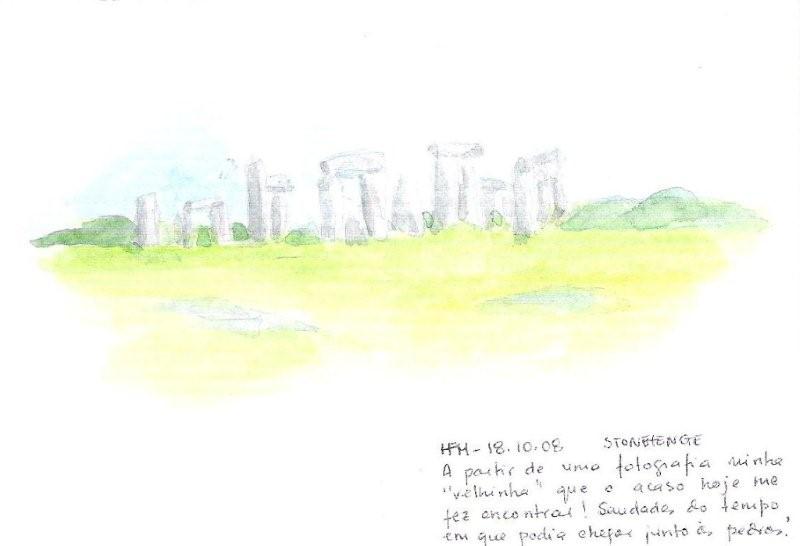 HFM - 18.10.08 STONEHENGE
A partir de uma fotografia minha
"velhinha" que o acaso hoje me
fez encontrar! Saudades do tempo
em que podia chegar junto às pedras!